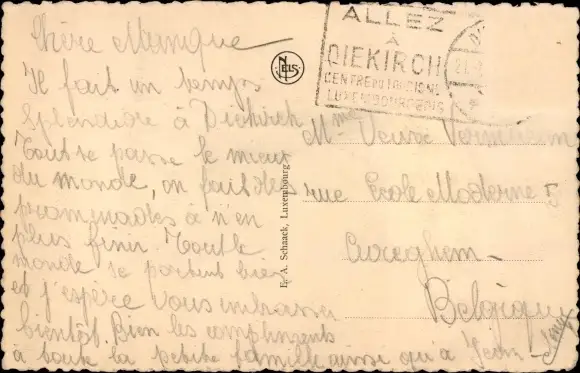 Chère Manique
Il fait un temps
splendide à Diekirch
Tout se passe le mieux
du monde, on fait des
promenades à n'en
plus finir. Tout le
monde se portent bien
et j'espère vous embrasser
bientôt. Bien les compliments
à toute la petite famille ainsi qu'à Jean
NELS
E. A. Schaack, Luxembourg
ALLEZ
À
DIEKIRCH
CENTRE DU TOURISME
LUXEMBOURGEOIS
Mme Veuve
rue Ecole Moderne 5
Cureghem
Belgique